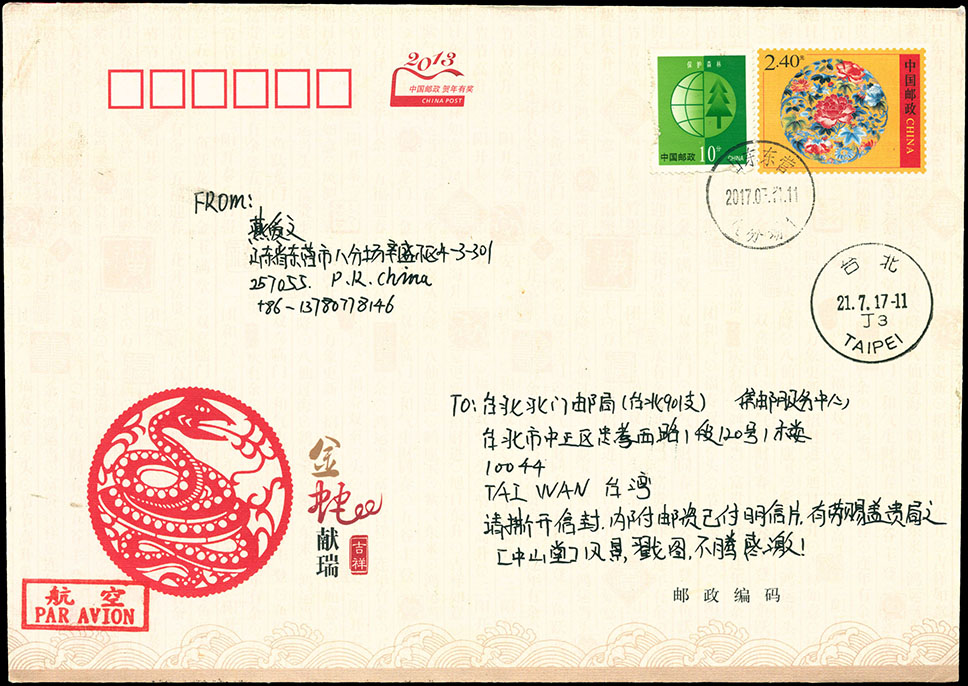 2013
中国邮政 贺年有奖
CHINA POST
保护森林
中国邮政 10分 CHINA
2.40元
中国邮政 CHINA
东营
2017.07.11.11
台北
21.7.17-11
J3
TAIPEI
FROM:
燕爱文
山东省东营市八分场辛盛小区4-3-301
257055. P.R. China
+86-13780778146
TO: 台北北门邮局(台北90支) 集邮服务中心
台北市中正区忠孝西路1段120号1楼
10044
TAIWAN 台湾
请撕开信封,内付邮资已付明信片,有劳赐盖贵局之
[中山堂]风景戳图,不胜感激!
金蛇
献瑞
吉祥
航空
PAR AVION
邮政编码